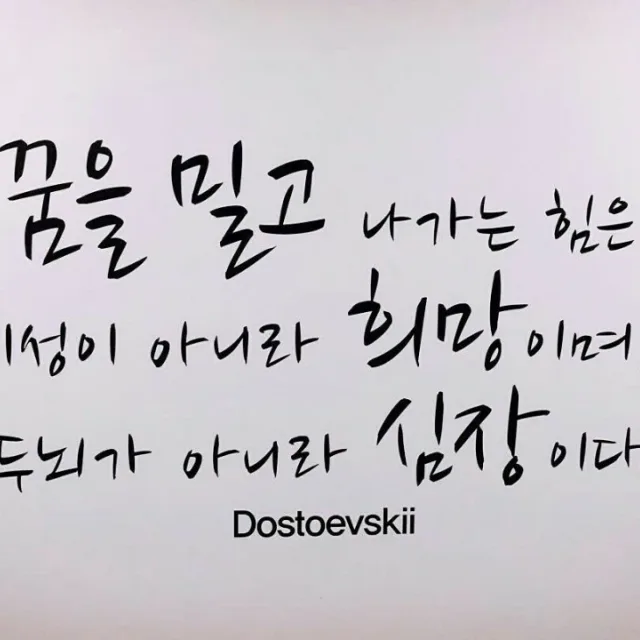 꿈을 밀고 나가는 힘은
이성이 아니라 희망이며
두뇌가 아니라 심장이다
Dostoevskii